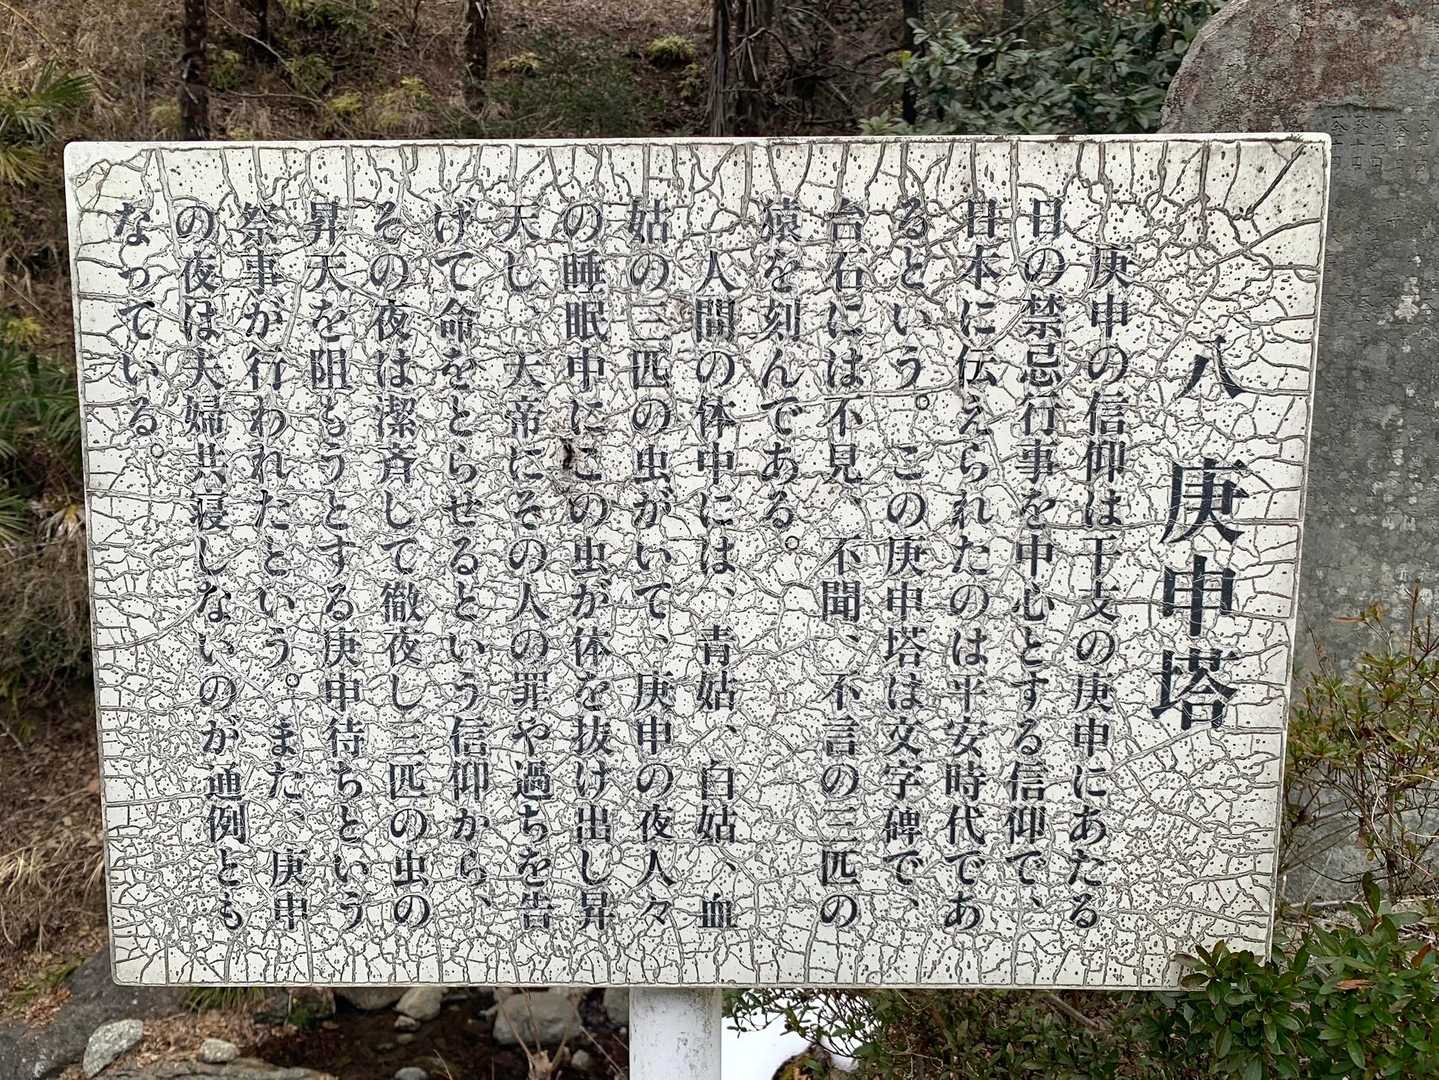 八 庚申塔
庚申の信仰は干支の庚申にあたる
日の禁忌行事を中心とする信仰で、
日本に伝えられたのは平安時代であ
るという。この庚申塔は文字碑で、
台石には不見、不聞、不言の三匹の
猿を刻んである。
人間の体中には、青姑、白姑、血
姑の三匹の虫がいて、庚申の夜人々
の睡眠中にこの虫が体を抜け出し昇
天し、天帝にその人の罪や過ちを告
げて命をとらせるという信仰から、
その夜は潔斉して徹夜し三匹の虫の
昇天を阻もうとする庚申待ちという
祭事が行われたという。また、庚申
の夜は夫婦共寝しないのが通例とも
なっている。